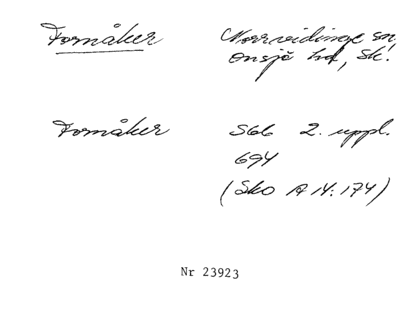 Fornåker Norrvidinge sn.
Onsjö hd, Sk.
Fornåker SGG 2. uppl.
694
(Sko A 14:174)
Nr 23923